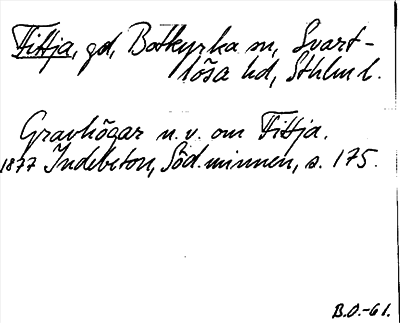 Fittja, gd, Botkyrka sn, Svart-
lösa hd, Sthlm l.
Gravhögar n.v. om Fittja.
1877 Indebetou, Söd. minnen, s. 175.
B.O.-61.